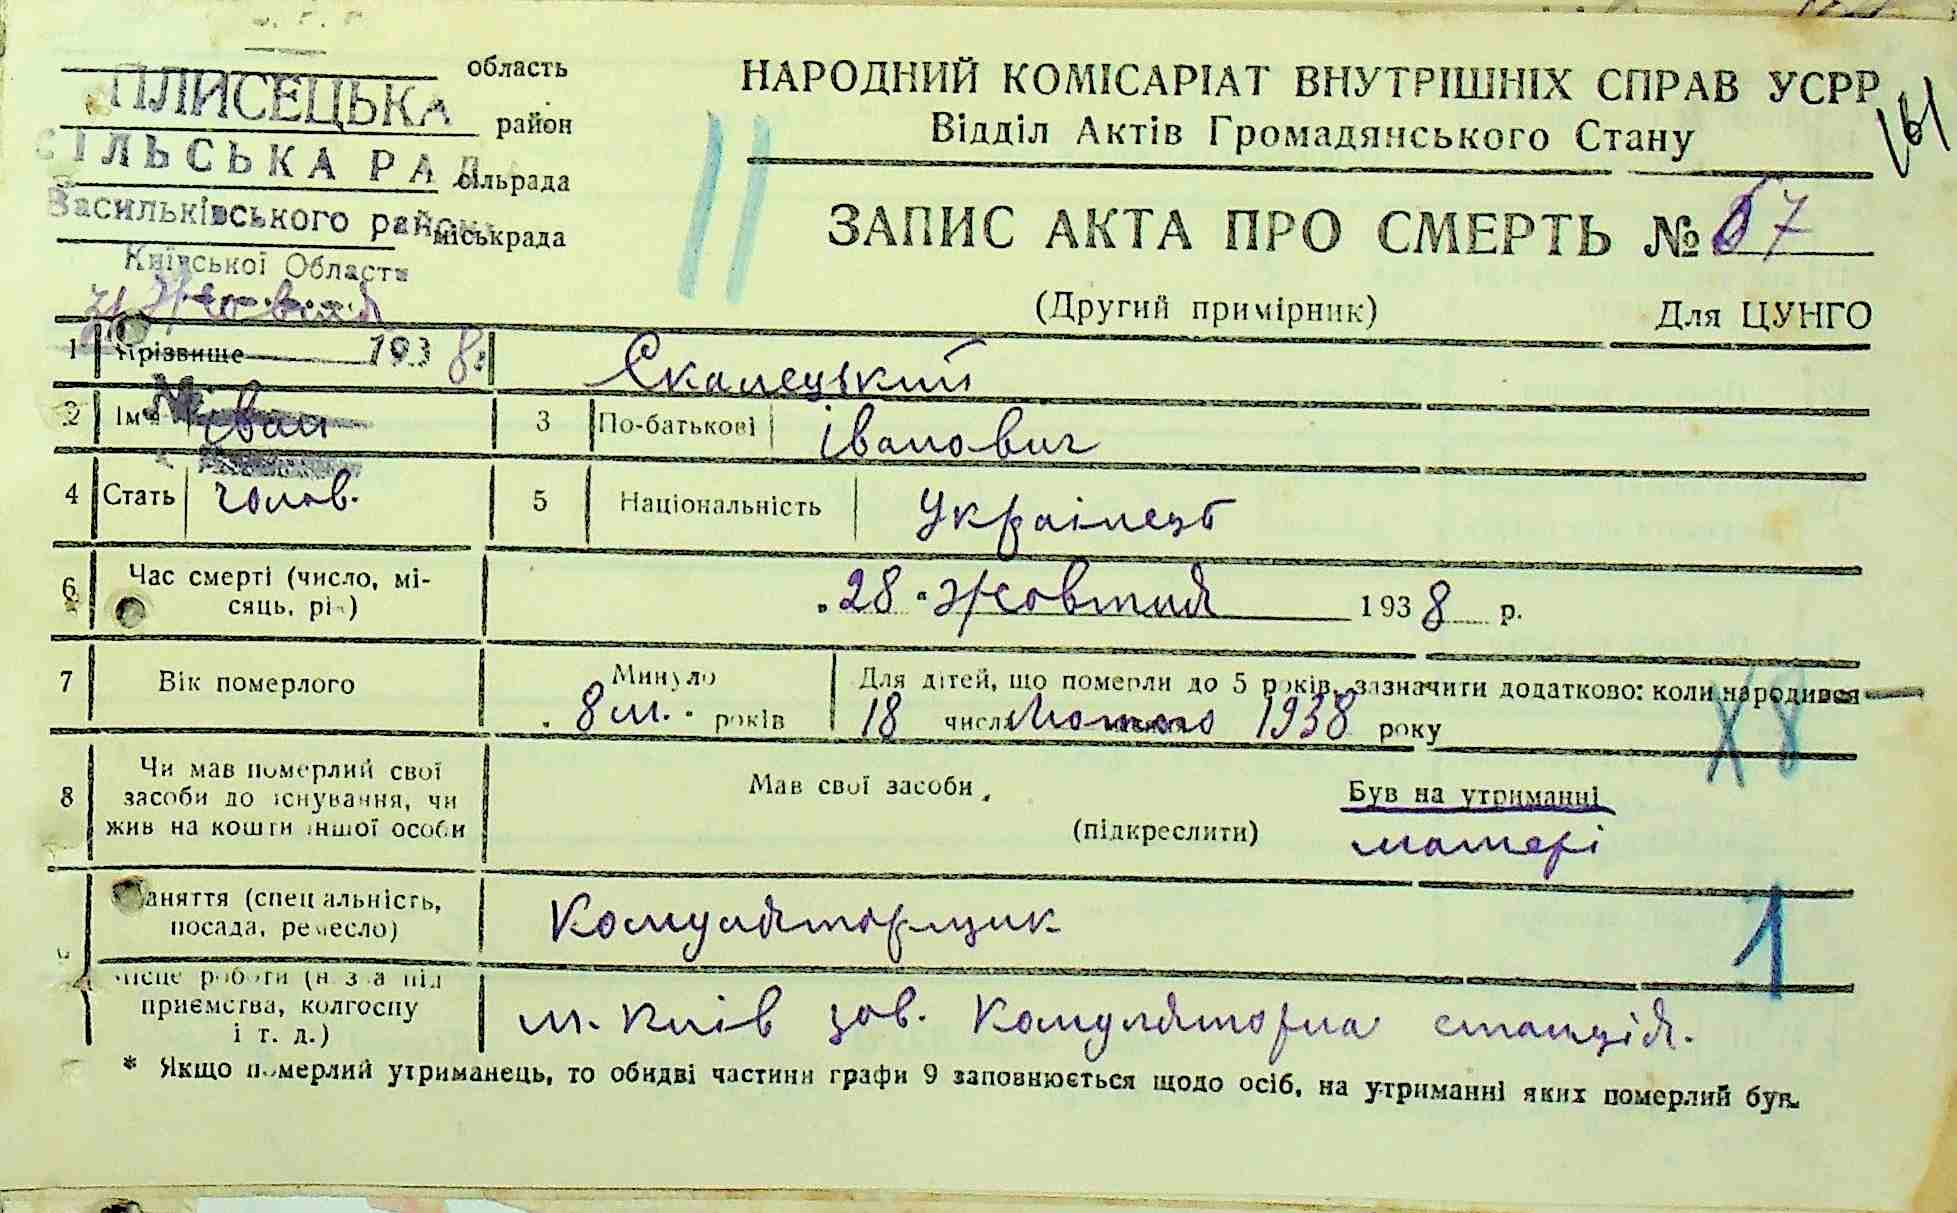 область
ПЛИСЕЦЬКА
район
СІЛЬСЬКА РАДА
сільрада
Васильківського району
міськрада
Київської Области
31 Жовтня
1938
НАРОДНИЙ КОМІСАРІАТ ВНУТРІШНІХ СПРАВ УСРР
Відділ Актів Громадянського Стану
161
ЗАПИС АКТА ПРО СМЕРТЬ № 67
(Другий примірник) Для ЦУНГО
1 Прізвище Скалецький
2 Ім'я Іван 3 По-батькові Іванович
4 Стать чолов. 5 Національність Українець
6 Час смерті (число, мі-
сяць, рік) 28 Жовтня 1938 р.
7 Вік померлого Минуло 8 м. років Для дітей, що померли до 5 років, зазначити додатково: коли народився
18 числа Лютого 1938 року
X 8
8 Чи мав померлий свої
засоби до існування, чи
жив на кошти іншої особи
Мав свої засоби
(підкреслити)
Був на утриманні
матері
Заняття (спеціальність,
посада, ремесло) Комуляторщик
1
Місце роботи (назва під
приємства, колгоспу
і т. д.) м. Київ зав. Комуляторна станція.
* Якщо померлий утриманець, то обидві частини графи 9 заповнюється щодо осіб, на утриманні яких померлий був.